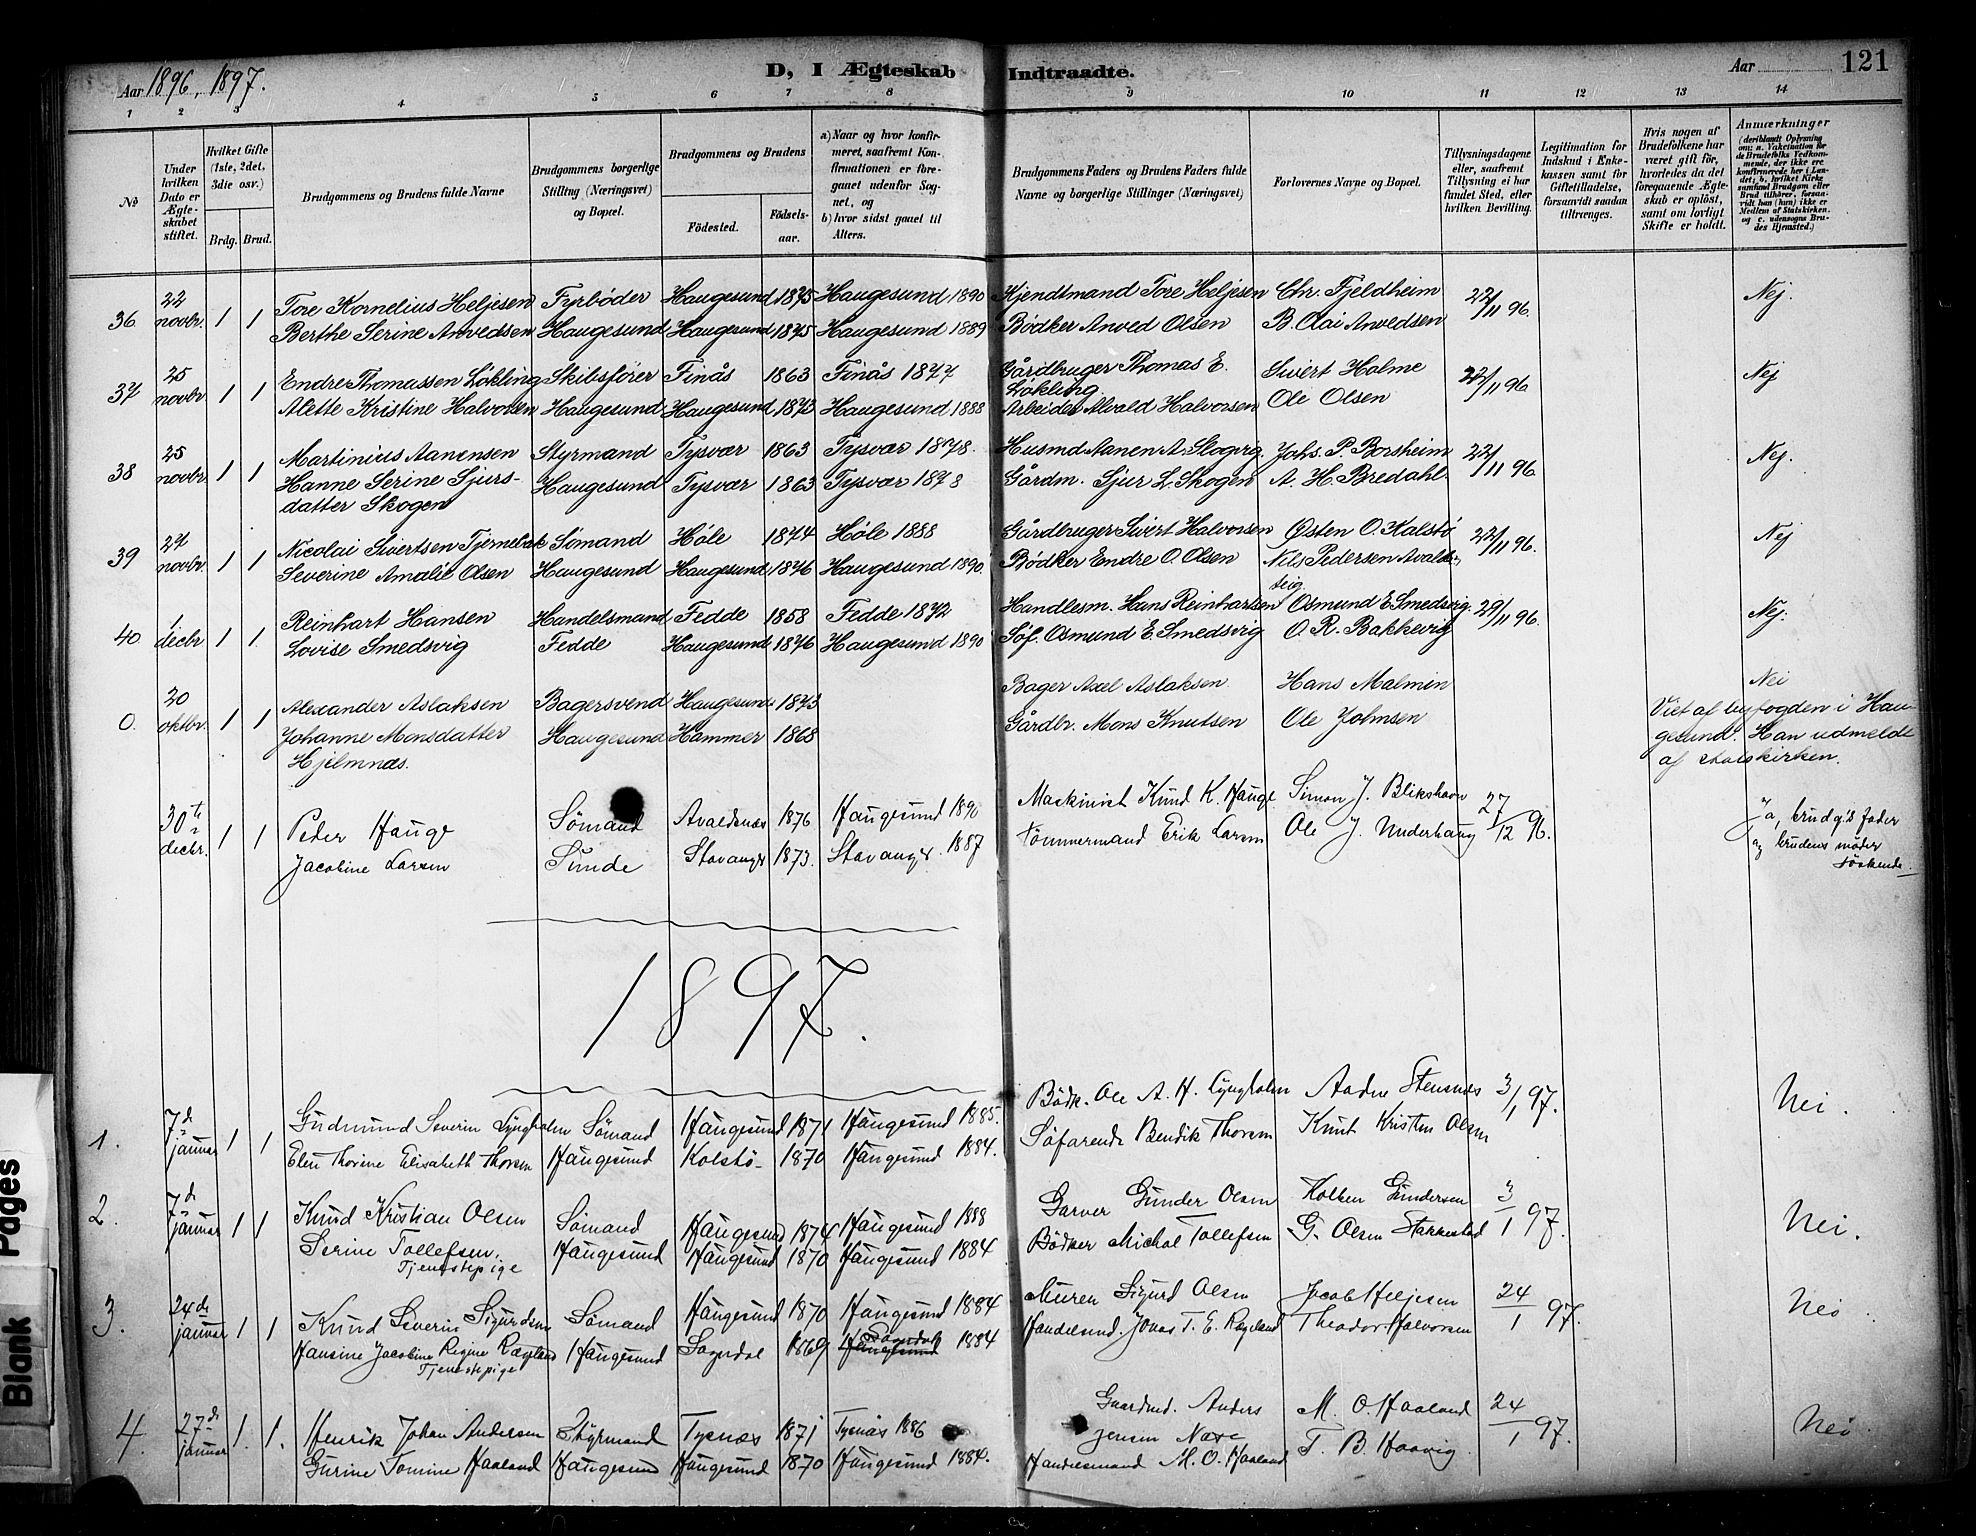 Aar 1896, 1897.
D, I Ægteskab Indtraadte.
Aar
121
1 2 3 4 5 6 7 8 9 10 11 12 13 14
No
Under hvilken Dato er Ægteskabet stiftet.
Hvilket Gifte (1ste, 2det, 3die osv.)
Brdg. Brud.
Brudgommens og Brudens fulde Navne
Brudgommens borgerlige Stilling (Næringsvei) og Bopæl.
Brudgommens og Brudens
Fødested.
Fødselsaar.
a) Naar og hvor konfirmeret, saafremt Konfirmationen er foregaaet udenfor Sognet, og
b) hvor sidst gaaet til Alters.
Brudgommens Faders og Brudens Faders fulde Navne og borgerlige Stillinger (Næringsvei)
Forlovernes Navne og Bopæl.
Tillysningsdagene eller, saafremt Tillysning ei har fundet Sted, efter hvilken Bevilling.
Legitimation for Indskud i Enkekassen samt for Giftetilladelse, forsaavidt saadan tiltrænges.
Hvis nogen af Brudefolkene har været gift før, hvorledes da det foregaaende Ægteskab er opløst, samt om lovligt Skifte er holdt.
Anmærkninger
(deriblandt Oplysning om: a. Vakcination for de Brudefolks Vedkommende, der ikke ere konfirmerede her i Landet; b. hvilket Kirkesamfund Brudgom eller Brud tilhører, forsaavidt han (hun) ikke er Medlem af Statskirken. og c. udensogns Brudes Hjemsted.)
36 22 novbr. 1 1 Tore Kornelius Heljesen Fyrbøder Haugesund 1875 Haugesund 1890 Kjendtmand Tore Heljesen Chr. Fjeldheim 22/11 96. Nej.
Berthe Serine Anvedsen Haugesund Haugesund 1875 Haugesund 1889 Bødker Anved Olsen B. Olai Anvedsen
37 25 novbr. 1 1 Endre Thomassen Løkling Skibsfører Finås 1863 Finås 1877 Gårdbruger Thomas E. Løkling Sivert Holme 22/11 96 Nej
Alette Kristine Halvorsen Haugesund Haugesund 1873 Haugesund 1888 Arbeider Alvald Halvorsen Ole Olsen
38 25 novbr. 1 1 Martinius Aanensen Styrmand Tysvær 1863 Tysvær 1878. Husmd Aanen A. Slogvig Johs. P. Borsheim 22/11 96 Nej.
Hanne Serine Sjursdatter Skogen Haugesund Tysvær 1863 Tysvær 1878 Gårdm. Sjur L. Skogen A. H. Bredahl.
39 27 novbr. 1 1 Nicolai Sivertsen Tjernebak Sømand Høle 1874 Høle 1888 Gårdbruger Sivert Halvorsen Østen O. Kalstø 22/11 96. Nej
Severine Amalie Olsen Haugesund Haugesund 1876 Haugesund 1890. Bødker Endre O. Olsen Nils Pedersen
40 decbr 1 1. Reinhart Hansen Handelsmand Fedde 1858 Fedde 1872 Handlesm. Hans Reinhartsen Osmund E Smedsvig. 29/11 96. Nej.
Lovise Smedsvig Fedde Haugesund 1876 Haugesund 1890 Søf. Osmund E. Smedsvig O. R. Bakkevig
0. 20 oktbr. 1 1 Alexander Aslaksen Bagersvend Haugesund 1873 Bager Axel Aslaksen. Hans Malmin Nei
Johanne Monsdatter Hjelmnæs. Haugesund Hammer 1868 Gårdbr. Mons Knutsen Ole Johnsen
Viet af byfogden i Haugesund. Han udmeldt af statskirken.
30te decbr. 1 1 Peder Hauge Sømand Avaldsnæs 1876 Haugesund 1890 Maskinist Knud K. Hauge Simon J. Blikshavn 27/12 96. Ja, brudg's fader
Jacobine Larsen Sunde Stavanger 1873. Stavanger. 1887 Tømmermand Erik Larsen Ole J. Underhaug og brudens moder søskende.
1897.
1. 7de januar 1 1 Gudmund Severin Lyngholm Sømand Haugesund 1871 Haugesund 1885. Bødk. Ole A. H. Lyngholm Aadne Stensnæs 3/1 97. Nei.
Elen Thorine Elisabeth Thorsen Haugesund Kolstø 1870 Haugesund 1884. Søfarende Bendik Thorsen Knut Kristen Olsen
2. 7de januar 1 1 Knud Kristian Olsen Sømand Haugesund 1874 Haugesund 1888 Garver Gunder Olsen Kolben Gundersen 3/1 97. Nei.
Serine Tollefsen. Tjenestepige Haugesund Haugesund 1870 Haugesund 1884 Bødker Michal Tollefsen G. Olsen Stakkestad
3. 24de januar 1 1 Knud Severin Sigurdsen Sømand Haugesund 1870 Haugesund 1884 Murer Sigurd Olsen Jacob Heljesen 24/1 97. Nei
Hansine Jacobine Regine Røyland Tjenestepige Haugesund Sogndal 1869 Sogndal Haugesund 1884 Handelsmd. Jonas T. E. Røyland Theodor Halvorsen
4. 27de januar 1. 1. Henrik Johan Andersen Styrmand Tysnæs 1871 Tysnæs 1886 Gaardmd. Anders Jensen Næse M. O. Haaland 24/1 97. Nei
Gurine Tomine Haaland Haugesund Haugesund 1870 Haugesund 1884. Handelsmand M. O. Haaland T. B. Haavig.
Blank Pages